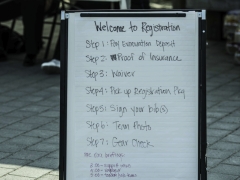 Welcome to Registration
Step 1: Pay Evacuation Deposit
Step 2: Proof of Insurance
Step 3: Waiver
Step 4: Pick up Registration Pkg
Step 5: Sign your bib(s)
Step 6: Team Photo
Step 7: Gear Check